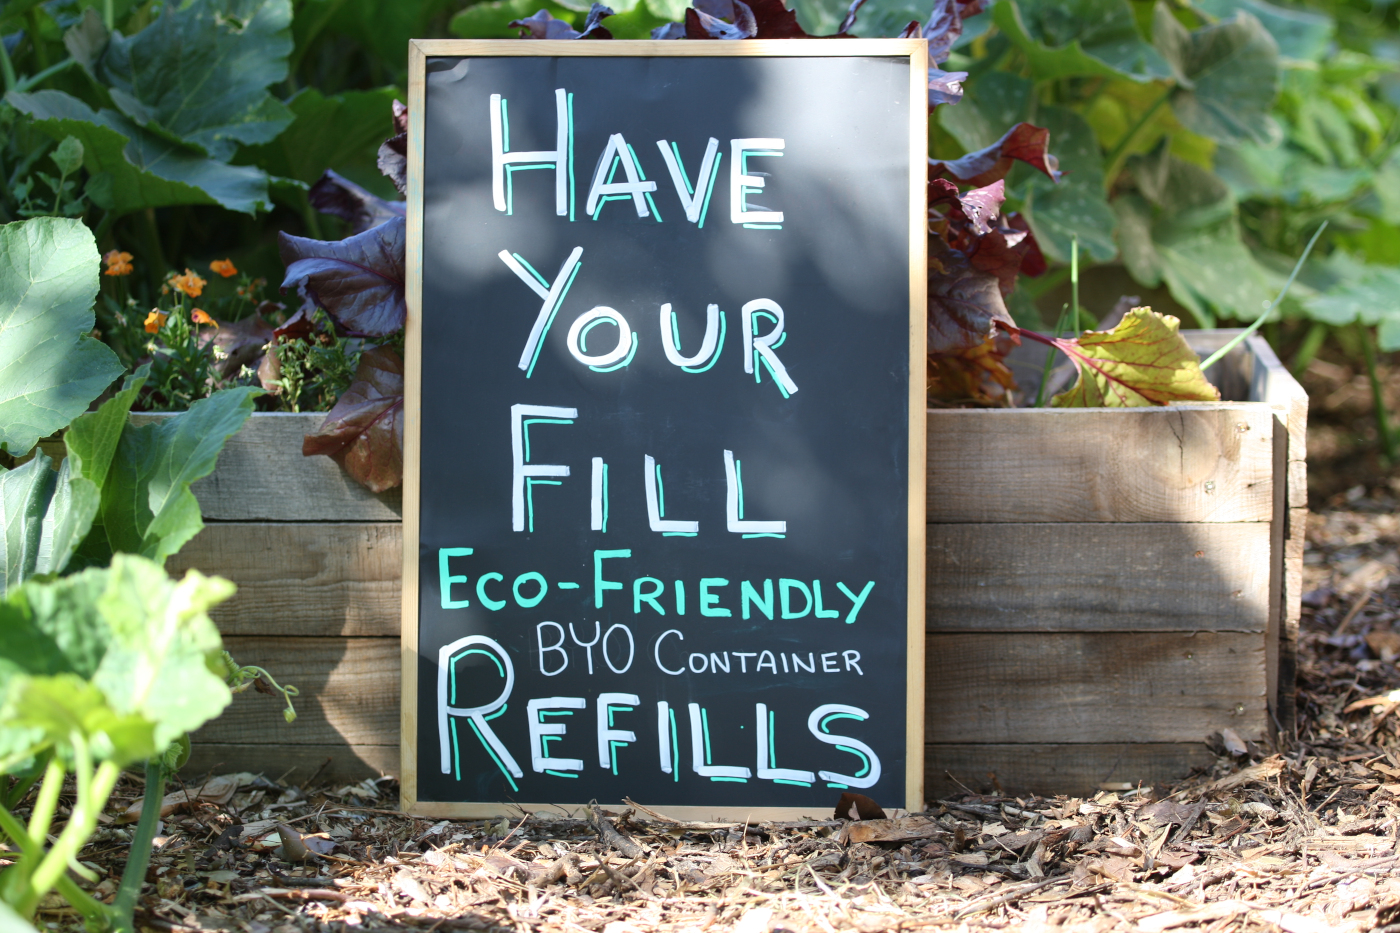 HAVE
YOUR
FILL
ECO-FRIENDLY
BYO CONTAINER
REFILLS